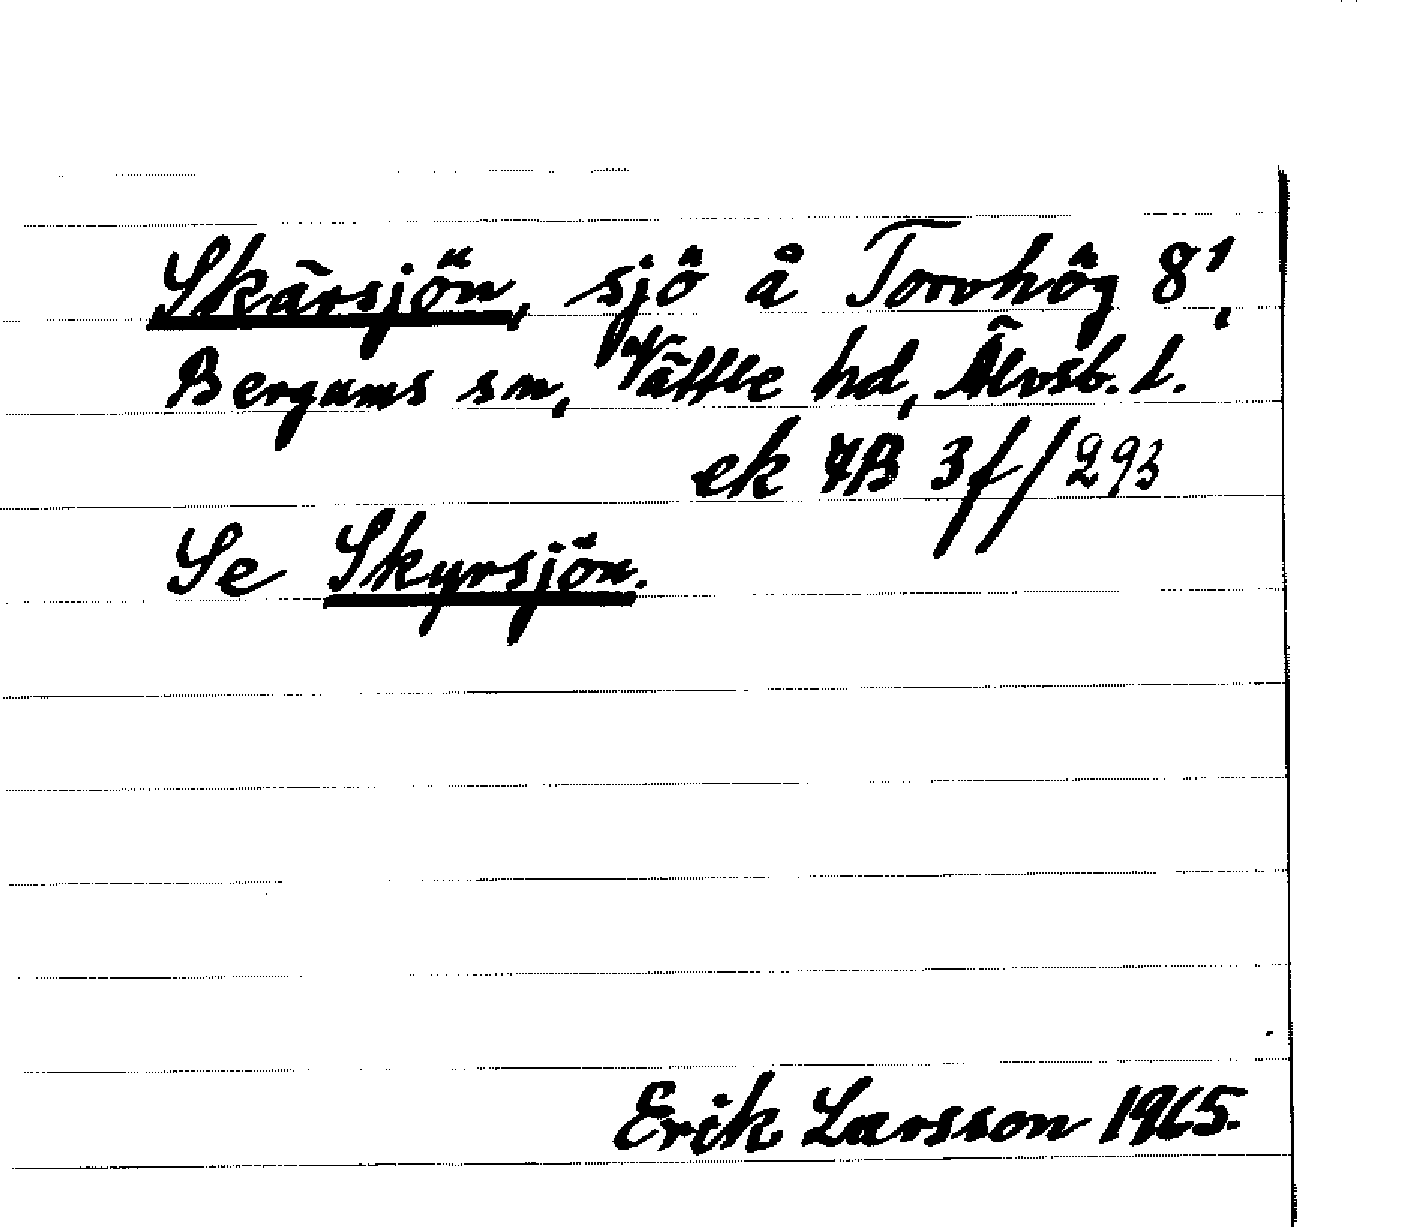 Skärsjön, sjö å Torvhög 8¹,
Bergums sn, Vättle hd, Älvsb. l.
ek 7B 3f/293
Se Skyrsjön.
Erik Larsson 1965.